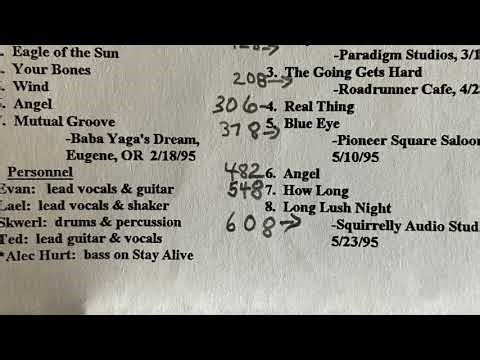 Eagle of the Sun
Your Bones
Wind
Angel
Mutual Groove
-Baba Yaga's Dream,
Eugene, OR 2/18/95
Personnel
Evan: lead vocals & guitar
Lael: lead vocals & shaker
Skwerl: drums & percussion
Ted: lead guitar & vocals
*Alec Hurt: bass on Stay Alive
-Paradigm Studios, 3/1
208→ 3. The Going Gets Hard
-Roadrunner Cafe, 4/2
306 4. Real Thing
378→ 5. Blue Eye
-Pioneer Square Saloo
5/10/95
482 6. Angel
548 7. How Long
608→ 8. Long Lush Night
-Squirrelly Audio Stud
5/23/95